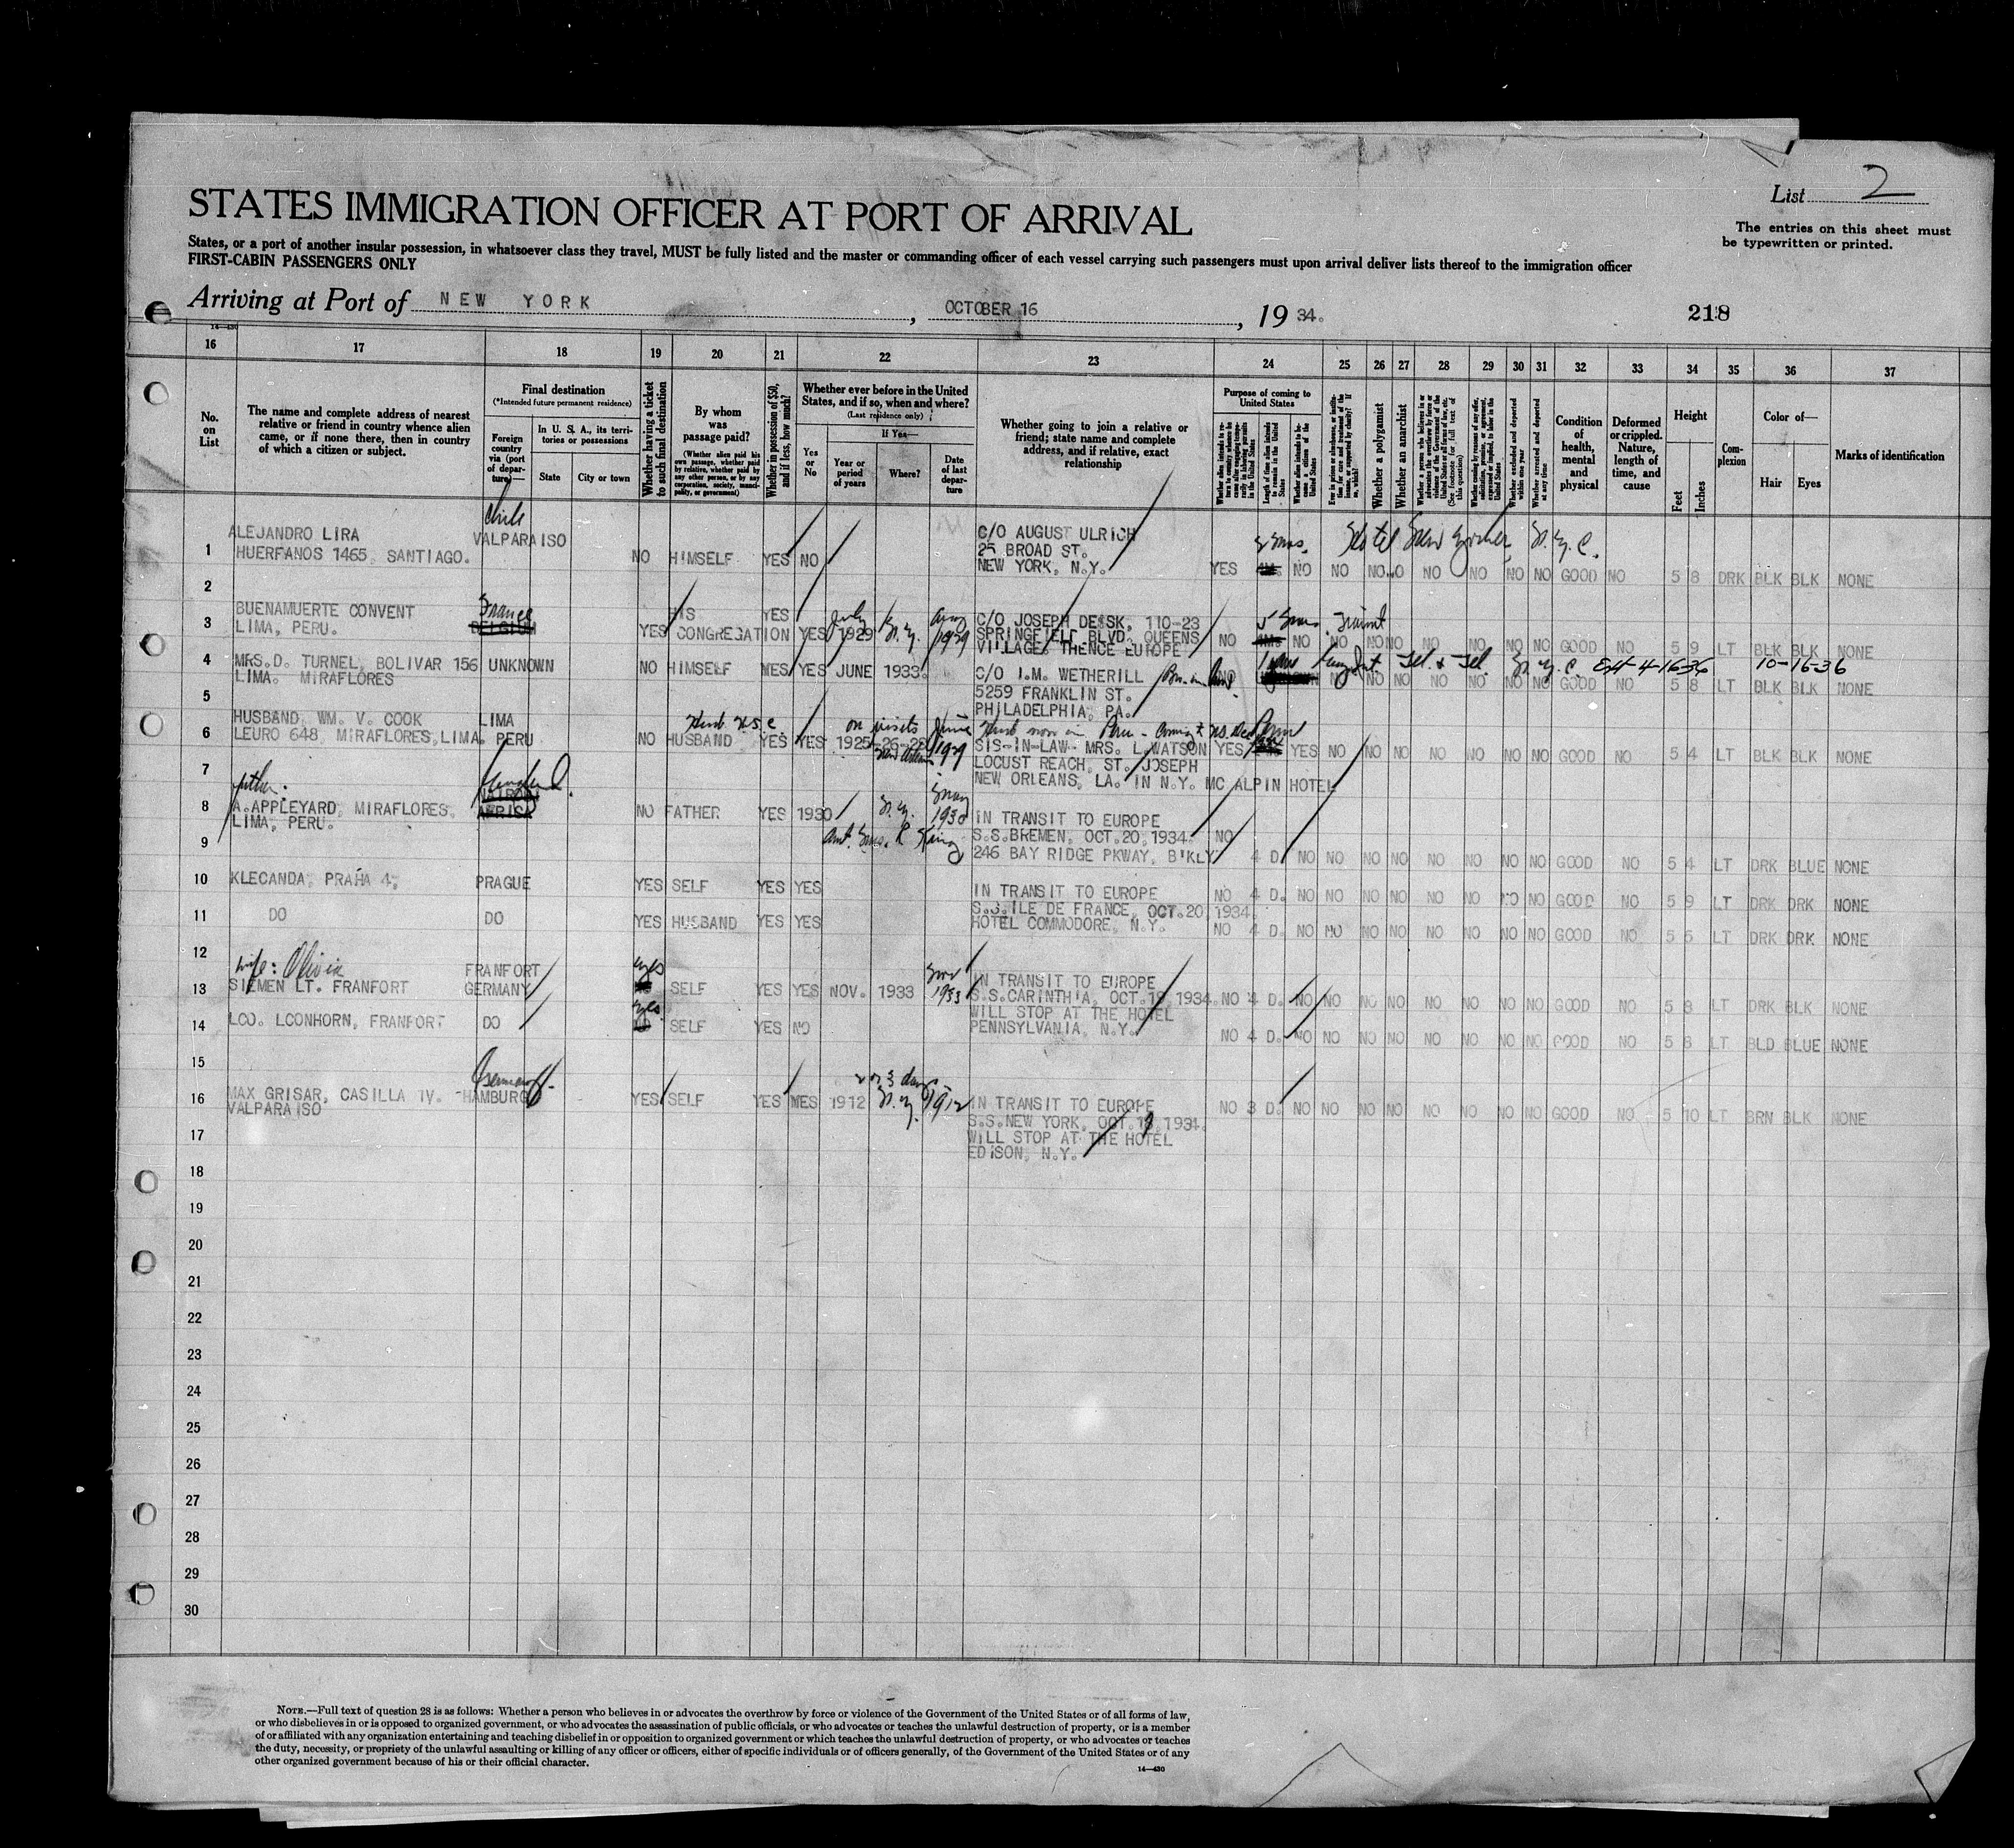 List 2
STATES IMMIGRATION OFFICER AT PORT OF ARRIVAL
The entries on this sheet must
be typewritten or printed.
States, or a port of another insular possession, in whatsoever class they travel, MUST be fully listed and the master or commanding officer of each vessel carrying such passengers must upon arrival deliver lists thereof to the immigration officer
FIRST-CABIN PASSENGERS ONLY
Arriving at Port of NEW YORK, OCTOBER 16, 19 34.
218
14—430
16 17 18 19 20 21 22 23 24 25 26 27 28 29 30 31 32 33 34 35 36 37
No. on List
The name and complete address of nearest relative or friend in country whence alien came, or if none there, then in country of which a citizen or subject.
Final destination
(*Intended future permanent residence)
Foreign country via (port of departure)—
In U. S. A., its territories or possessions
State
City or town
Whether having a ticket to such final destination
By whom was passage paid?
(Whether alien paid his own passage, whether paid by relative, whether paid by any other person, or by any corporation, society, municipality, or government)
Whether in possession of $50, and if less, how much?
Whether ever before in the United States, and if so, when and where?
(Last residence only)
Yes or No
If Yes—
Year or period of years
Where?
Date of last departure
Whether going to join a relative or friend; state name and complete address, and if relative, exact relationship
Purpose of coming to United States
Length of time alien intends to remain in the United States
Whether alien intends to become a citizen of the United States
Whether a polygamist
Whether an anarchist
Whether excluded and deported within one year
Whether arrested and deported at any time
Condition of health, mental and physical
Deformed or crippled. Nature, length of time, and cause
Height
Feet
Inches
Complexion
Color of—
Hair
Eyes
Marks of identification
Chile
1 ALEJANDRO LIRA VALPARAISO C/O AUGUST ULRICH Hotel New Yorker, N.Y.C.
HUERFANOS 1465, SANTIAGO. NO HIMSELF YES NO 25 BROAD ST.
NEW YORK, N.Y. YES NO NO NO NO NO NO NO NO GOOD NO 5 8 DRK BLK BLK NONE
2
France
3 BUENAMUERTE CONVENT BELGIUM HIS YES July N.Y. C/O JOSEPH DEISK, 110-23 Transit
LIMA, PERU. YES CONGREGATION YES 1929 1929 SPRINGFIELD BLVD. QUEENS
VILLAGE, THENCE EUROPE NO NO NO NO NO NO NO NO NO GOOD NO 5 9 LT BLK BLK NONE
4 MRS. D. TURNEL, BOLIVAR 156 UNKNOWN NO HIMSELF YES YES JUNE 1933. C/O I.M. WETHERILL N.Y.C. Ext 4-16-36 10-16-36
LIMA. MIRAFLORES 5259 FRANKLIN ST. NO NO NO NO NO NO NO NO GOOD NO 5 8 LT BLK BLK NONE
5 PHILADELPHIA, PA.
Husb U.S.C. on visits June Husb now in Peru - coming to U.S.
6 HUSBAND, WM. V. COOK LIMA
LEURO 648, MIRAFLORES, LIMA. PERU NO HUSBAND YES YES 1925-26-28 1929 SIS-IN-LAW- MRS. L. WATSON YES YES NO NO NO NO NO NO NO GOOD NO 5 4 LT BLK BLK NONE
New Orleans LOCUST REACH, ST. JOSEPH
7 NEW ORLEANS, LA. IN N.Y. MC ALPIN HOTEL
father. England.
NAIROBI
8 A. APPLEYARD, MIRAFLORES, AFRICA NO FATHER YES 1930 N.Y. 1930 IN TRANSIT TO EUROPE
LIMA, PERU. S.S. BREMEN, OCT. 20, 1934. NO
9 246 BAY RIDGE PKWAY, B'KLY 4 D. NO NO NO NO NO NO NO NO GOOD NO 5 4 LT DRK BLUE NONE
10 KLECANDA, PRAHA 4, PRAGUE YES SELF YES YES IN TRANSIT TO EUROPE NO 4 D. NO NO NO NO NO NO NO NO GOOD NO 5 9 LT DRK DRK NONE
S.S. ILE DE FRANCE, OCT. 20, 1934.
11 DO DO YES HUSBAND YES YES HOTEL COMMODORE, N.Y. NO 4 D. NO NO NO NO NO NO NO NO GOOD NO 5 5 LT DRK DRK NONE
12
wife: Olivia yes
13 FRANFORT IN TRANSIT TO EUROPE
SIEMEN LT. FRANFORT GERMANY SELF YES YES NOV. 1933 1933 S.S. CARINTHIA, OCT. 19, 1934. NO 4 D. NO NO NO NO NO NO NO NO GOOD NO 5 8 LT DRK BLK NONE
yes WILL STOP AT THE HOTEL
14 LOO. LCONHORN, FRANFORT DO SELF YES NO PENNSYLVANIA, N.Y. NO 4 D. NO NO NO NO NO NO NO NO GOOD NO 5 8 LT BLD BLUE NONE
15
Germany 2 or 3 days
16 MAX GRISAR, CASILLA IV. HAMBURG YES SELF YES YES 1912 N.Y. 1912 IN TRANSIT TO EUROPE NO 3 D. NO NO NO NO NO NO NO NO GOOD NO 5 10 LT BRN BLK NONE
VALPARAISO S.S. NEW YORK, OCT. 19, 1934.
17 WILL STOP AT THE HOTEL
EDISON, N.Y.
18
19
20
21
22
23
24
25
26
27
28
29
30
NOTE.—Full text of question 28 is as follows: Whether a person who believes in or advocates the overthrow by force or violence of the Government of the United States or of all forms of law,
or who disbelieves in or is opposed to organized government, or who advocates the assassination of public officials, or who advocates or teaches the unlawful destruction of property, or is a member
of or affiliated with any organization entertaining and teaching disbelief in or opposition to organized government or which teaches the unlawful destruction of property, or who advocates or teaches
the duty, necessity, or propriety of the unlawful assaulting or killing of any officer or officers, either of specific individuals or of officers generally, of the Government of the United States or of any
other organized government because of his or their official character.
14—430